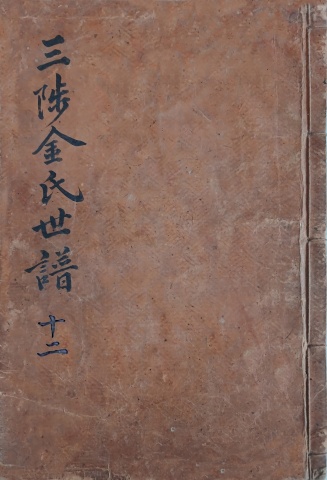 三陟金氏世譜
十二